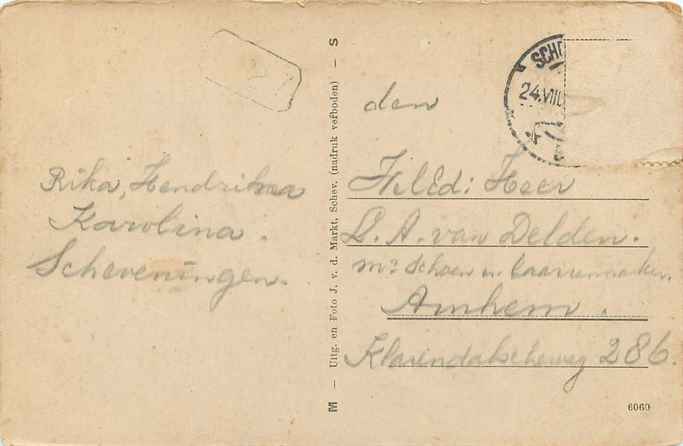 Rika, Hendrikna
Karolina.
Scheveningen.
M — Uitg. en Foto J. v. d. Markt, Schev. (nadruk verboden) — S
SCH
24.VIII
den
Heer
L. A. van Delden.
Schoen en
Arnhem.
Klarendalscheweg 286.
6060